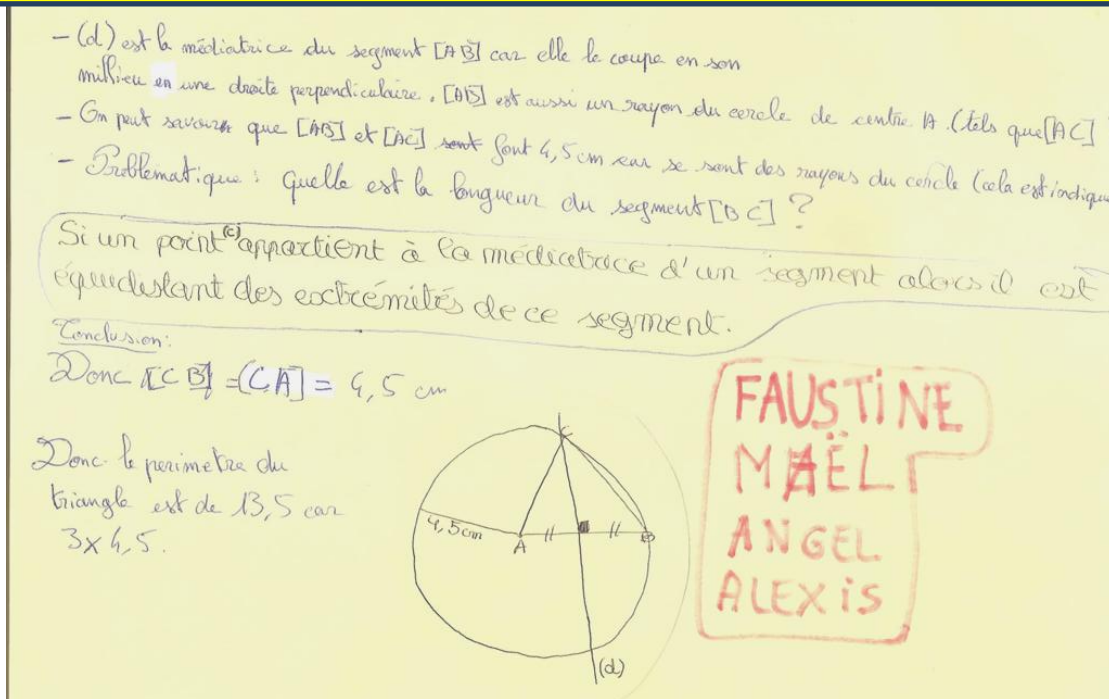 - (d) est la médiatrice du segment [AB] car elle le coupe en son
millieu en une droite perpendiculaire. [AB] est aussi un rayon du cercle de centre A. (tels que [AC]
- On peut savoir que [AB] et [AC] font 4,5 cm car se sont des rayons du cercle (cela est indiqué
- Problématique : Quelle est la longueur du segment [BC] ?
Si un point (C) appartient à la médiatrice d'un segment alors il est
équidistant des extrémités de ce segment.
Conclusion :
Donc [CB] = [CA] = 4,5 cm
Donc le perimetre du
triangle est de 13,5 car
3 x 4,5.
C
4,5 cm
A
B
(d)
FAUSTINE
MAËL
ANGEL
ALEXIS